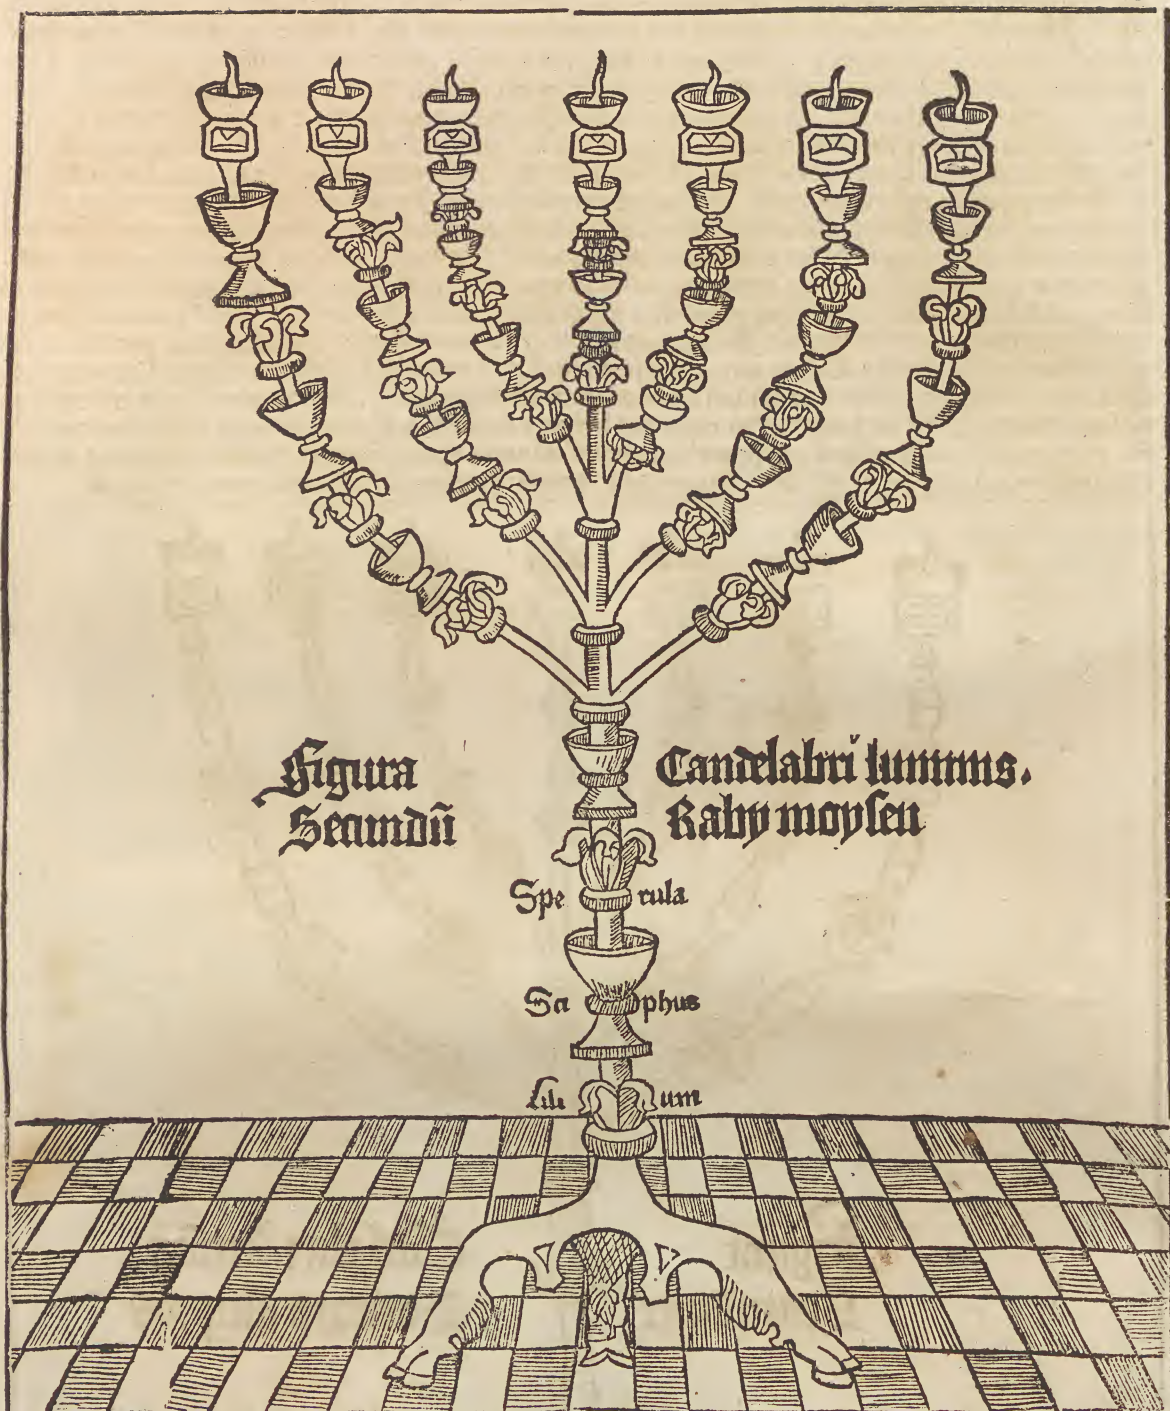 Figura Candelabri luminis.
Secundū Raby moyseu
Spe rula
Sci phus
Lili um